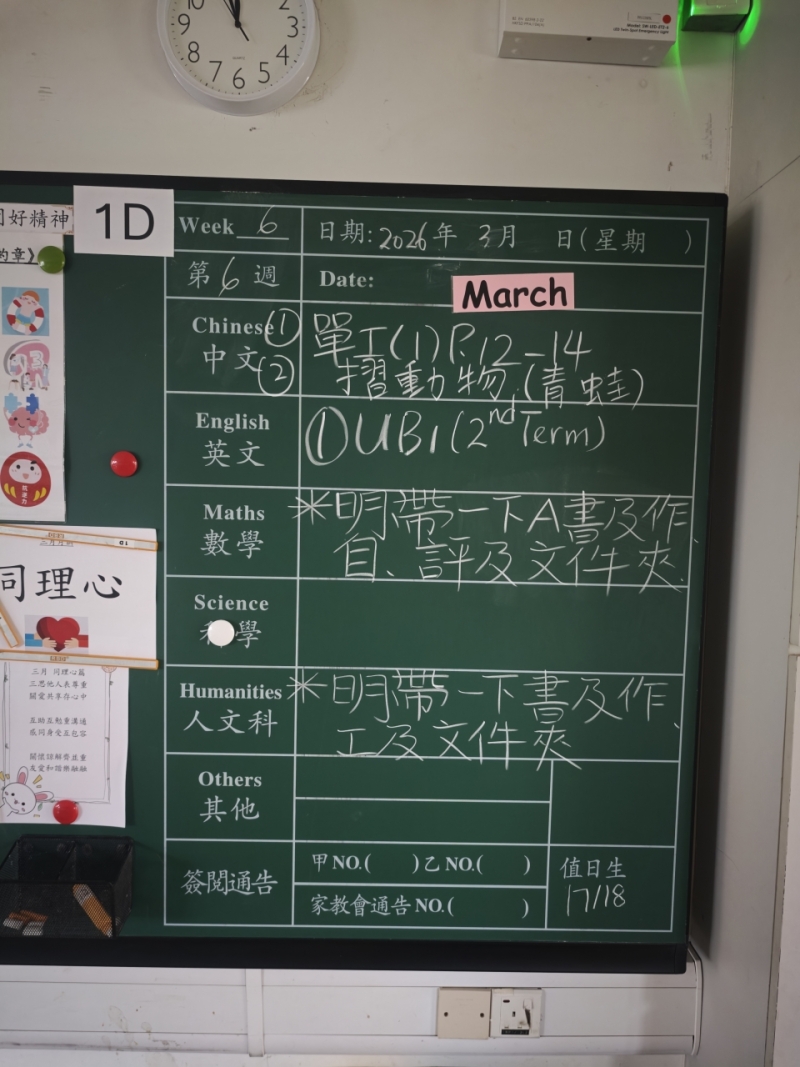 10
2
9
3
8
4
7
6
5
QUARTZ
好精神
1D
Week 6
日期: 2026年 3月 日(星期 )
第 6 週
Date:
March
Chinese ① 單工(1) P.12-14
中文 ② 摺動物(青蛙)
English ① UB1 (2nd Term)
英文
Maths ※明帶一下A書及作、
數學 自、評及文件夾
Science
學
同理心
三月 同理心篇
三思他人表尊重
關愛共享存心中
互助互勉重溝通
感同身受互包容
關懷諒解齊並重
友愛和諧樂融融
Humanities ※明帶一下書及作、
人文科 工及文件夾
Others
其他
簽閱通告
甲NO.( )乙NO.( )
家教會通告NO.( )
值日生
17/18